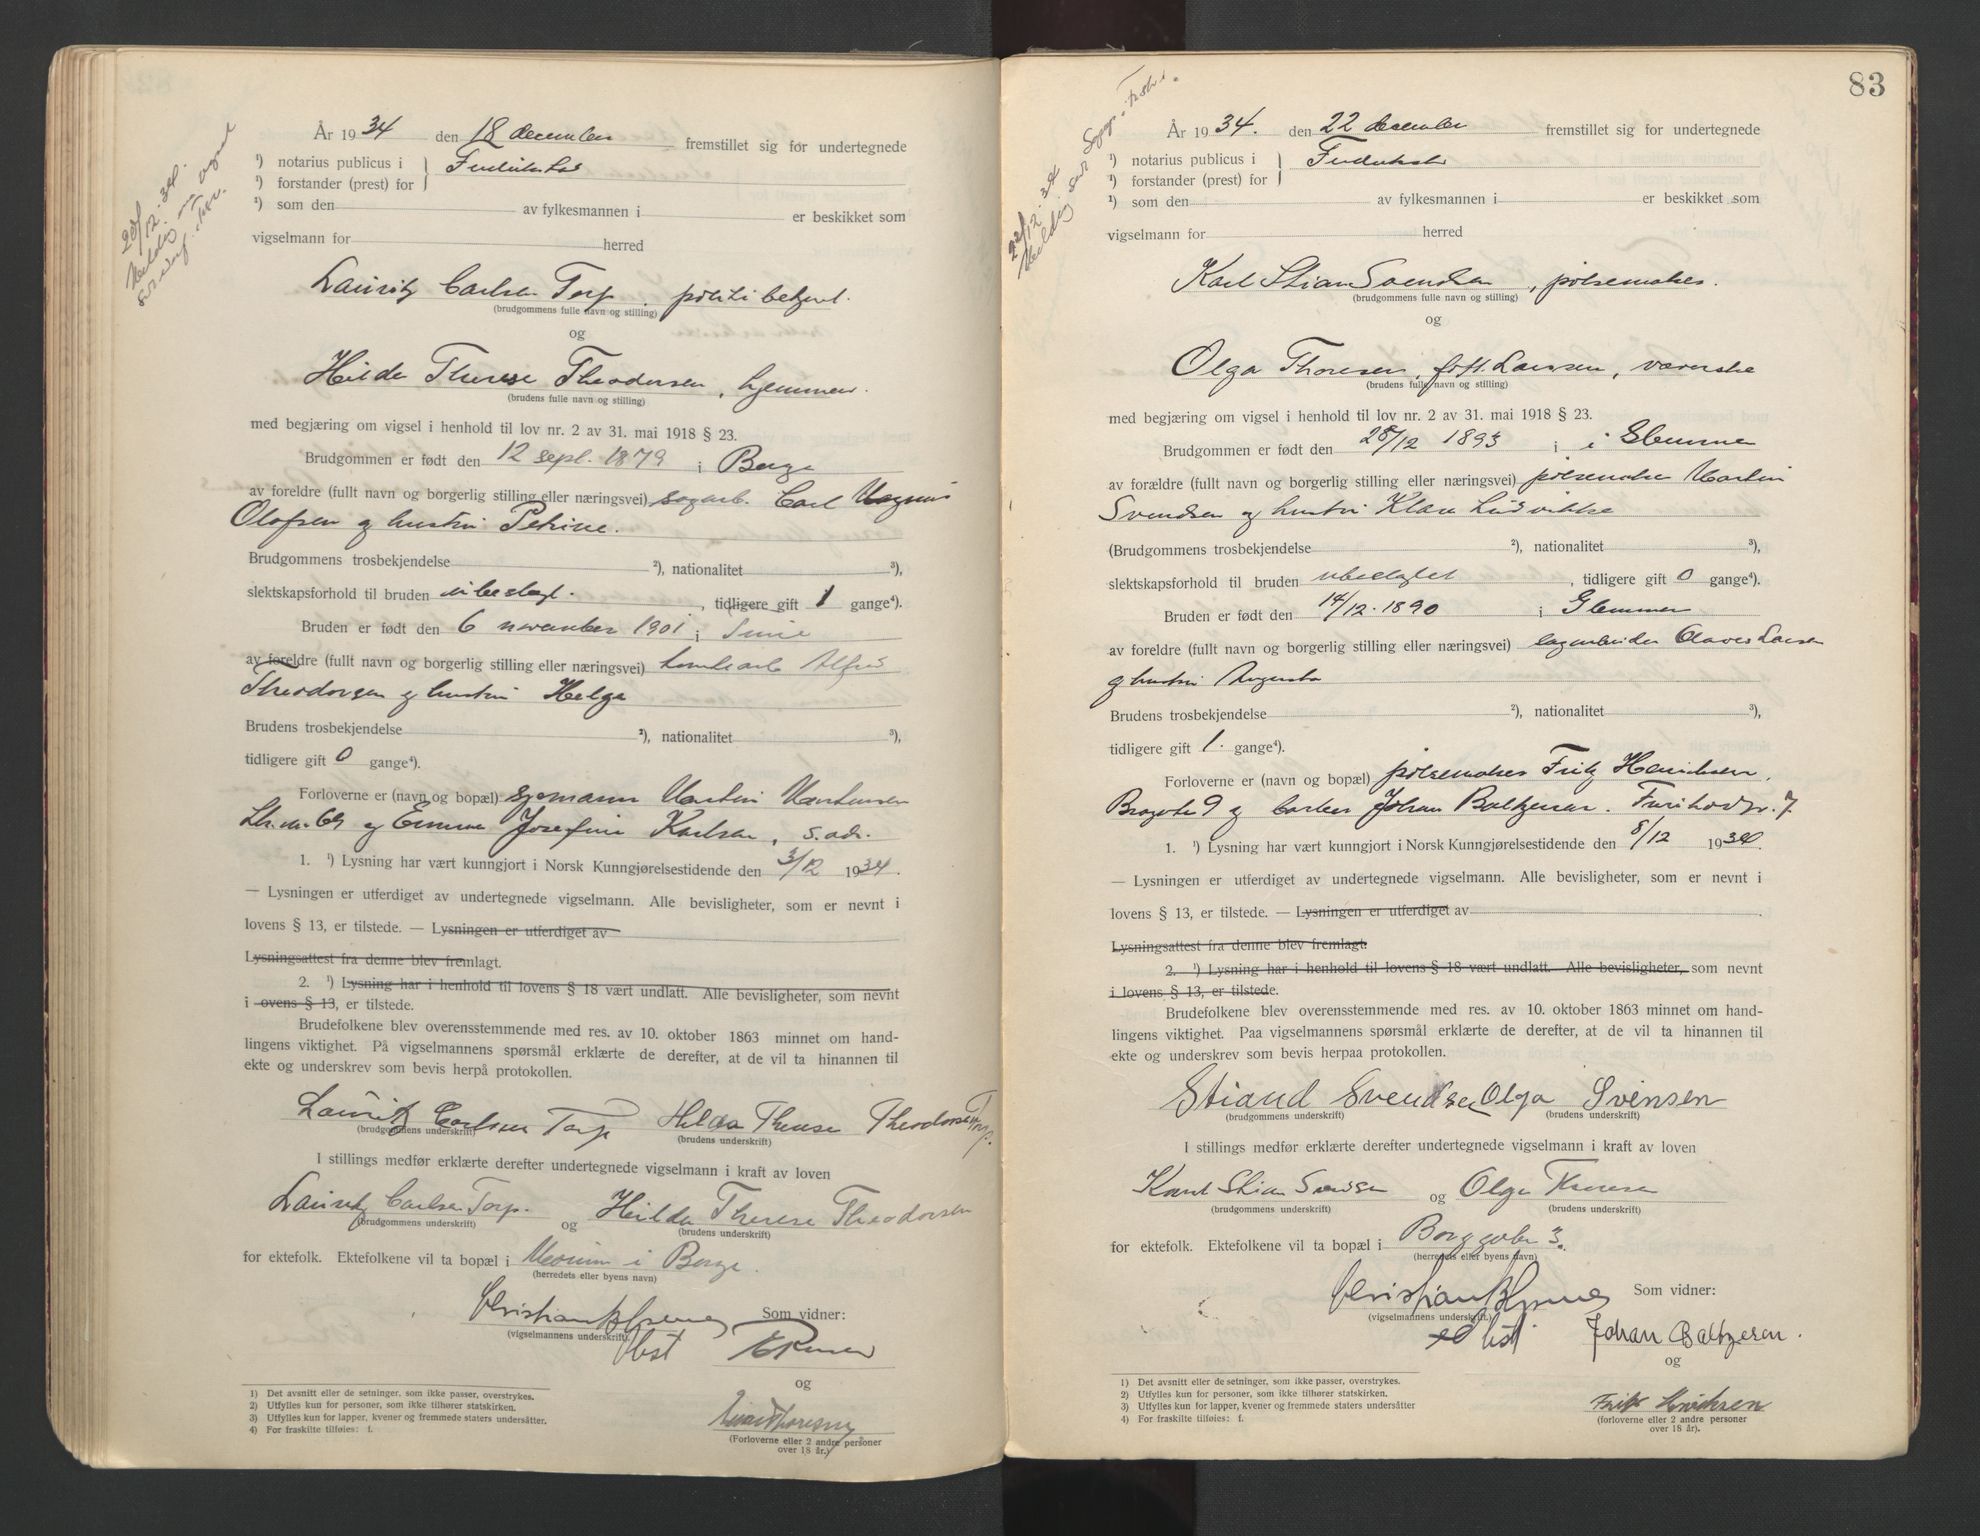 År 1934 den 18 december fremstillet sig for undertegnede
¹) notarius publicus i
¹) forstander (prest) for
¹) som den av fylkesmannen i er beskikket som
vigselmann for herred
20/12.34.
Lauritz Carlsen Torp, politibetjent.
(brudgommens fulle navn og stilling)
og
Hilda Therese Theodorsen, hjemmev.
(brudens fulle navn og stilling)
med begjæring om vigsel i henhold til lov nr. 2 av 31. mai 1918 § 23.
Brudgommen er født den 12 sept. 1879 i Borge
av foreldre (fullt navn og borgerlig stilling eller næringsvei) sagarb. Carl Magnus
Olafsen og hustru Petrine.
Brudgommens trosbekjendelse ²), nationalitet ³),
slektskapsforhold til bruden ubeslegt. , tidligere gift 1 gange⁴).
Bruden er født den 6 november 1901 i
av foreldre (fullt navn og borgerlig stilling eller næringsvei) Alfred
Theodorsen og hustru Helga
Brudens trosbekjendelse ²), nationalitet ³),
tidligere gift 0 gange⁴).
Forloverne er (navn og bopæl) sjømann Martin
og Emma Josefine Karlsen, s. adr.
1. ¹) Lysning har vært kunngjort i Norsk Kunngjørelsestidende den 3/12 1934.
— Lysningen er utferdiget av undertegnede vigselmann. Alle bevisligheter, som er nevnt i
lovens § 13, er tilstede. — Lysningen er utferdiget av
Lysningsattest fra denne blev fremlagt.
2. ¹) Lysning har i henhold til lovens § 18 vært undlatt. Alle bevisligheter, som nevnt
i ovens § 13, er tilstede.
Brudefolkene blev overensstemmende med res. av 10. oktober 1863 minnet om hand-
lingens viktighet. På vigselmannens spørsmål erklærte de derefter, at de vil ta hinannen til
ekte og underskrev som bevis herpå protokollen.
Lauritz Carlsen Torp Hilda Therese Theodorsen Torp.
(brudgommens underskrift) (brudens underskrift)
I stillings medfør erklærte derefter undertegnede vigselmann i kraft av loven
Lauritz Carlsen Torp. og Hilda Therese Theodorsen
(brudgommens underskrift) (brudens underskrift)
for ektefolk. Ektefolkene vil ta bopæl i Moum i Borge.
(herredets eller byens navn)
Som vidner:
(vigselmannens underskrift).
og
(Forloverne eller 2 andre personer
over 18 år.)
1) Det avsnitt eller de setninger, som ikke passer, overstrykes.
2) Utfylles kun for personer, som ikke tilhører statskirken.
3) Utfylles kun for lapper, kvener og fremmede staters undersåtter.
4) For fraskilte tilføies: f.
83
År 1934. den 22 december fremstillet sig for undertegnede
¹) notarius publicus i
¹) forstander (prest) for
¹) som den av fylkesmannen i er beskikket som
vigselmann for herred
22/12.34
Karl Stian Svendsen, pølsemaker.
(brudgommens fulle navn og stilling)
og
Olga Thoresen, født Larsen, væverske
(brudens fulle navn og stilling)
med begjæring om vigsel i henhold til lov nr. 2 av 31. mai 1918 § 23.
Brudgommen er født den 28/12 1893 i i Glemme
av forældre (fullt navn og borgerlig stilling eller næringsvei) pølsemaker Martin
Svendsen og hustru Klara Ludvikke
(Brudgommens trosbekjendelse ²), nationalitet ³),
slektskapsforhold til bruden ubeslegtet , tidligere gift 0 gange⁴).
Bruden er født den 14/12.1890 i Glemmen
av foreldre (fullt navn og borgerlig stilling eller næringsvei) sagarbeider Olaves Larsen
og hustru Augusta
Brudens trosbekjendelse ²), nationalitet ³),
tidligere gift 1. gange⁴).
Forloverne er (navn og bopæl) pølsemaker Fritz Henriksen,
9 og Johan Baltzersen. 7.
1. ¹) Lysning har vært kunngjort i Norsk Kunngjørelsestidende den 8/12 1934.
— Lysningen er utferdiget av undertegnede vigselmann. Alle bevisligheter, som er nevnt i
lovens § 13, er tilstede. — Lysningen er utferdiget av
Lysningsattest fra denne blev fremlagt.
2. ¹) Lysning har i henhold til lovens § 18 vært undlatt. Alle bevisligheter, som nevnt
i lovens § 13, er tilstede.
Brudefolkene blev overensstemmende med res. av 10. oktober 1863 minnet om hand-
lingens viktighet. Paa vigselmannens spørsmål erklærte de derefter, at de vil ta hinannen til
ekte og underskrev som bevis herpaa protokollen.
Stiand Svendsen Olga Svensen
(brudgommens underskrift) (brudens underskrift)
I stillings medfør erklærte derefter undertegnede vigselmann i kraft av loven
Karl Stian Svendsen og Olga Thoresen
(brudgommens underskrift) (brudens underskrift)
for ektefolk. Ektefolkene vil ta bopæl i 3.
(herredets eller byens navn)
Som vidner:
(vigselmannens underskrift).
Johan Baltzersen.
og
Fritz Henriksen
(forloverne eller 2 andre personer
over 18 år).
1) Det avsnitt eller de setninger, som ikke passer, overstrykes.
2) Utfylles kun for personer, som ikke tilhører statskirken.
3) Utfylles kun for lapper, kvener og fremmede staters undersåtter
4) For fraskilte tilføies: f.